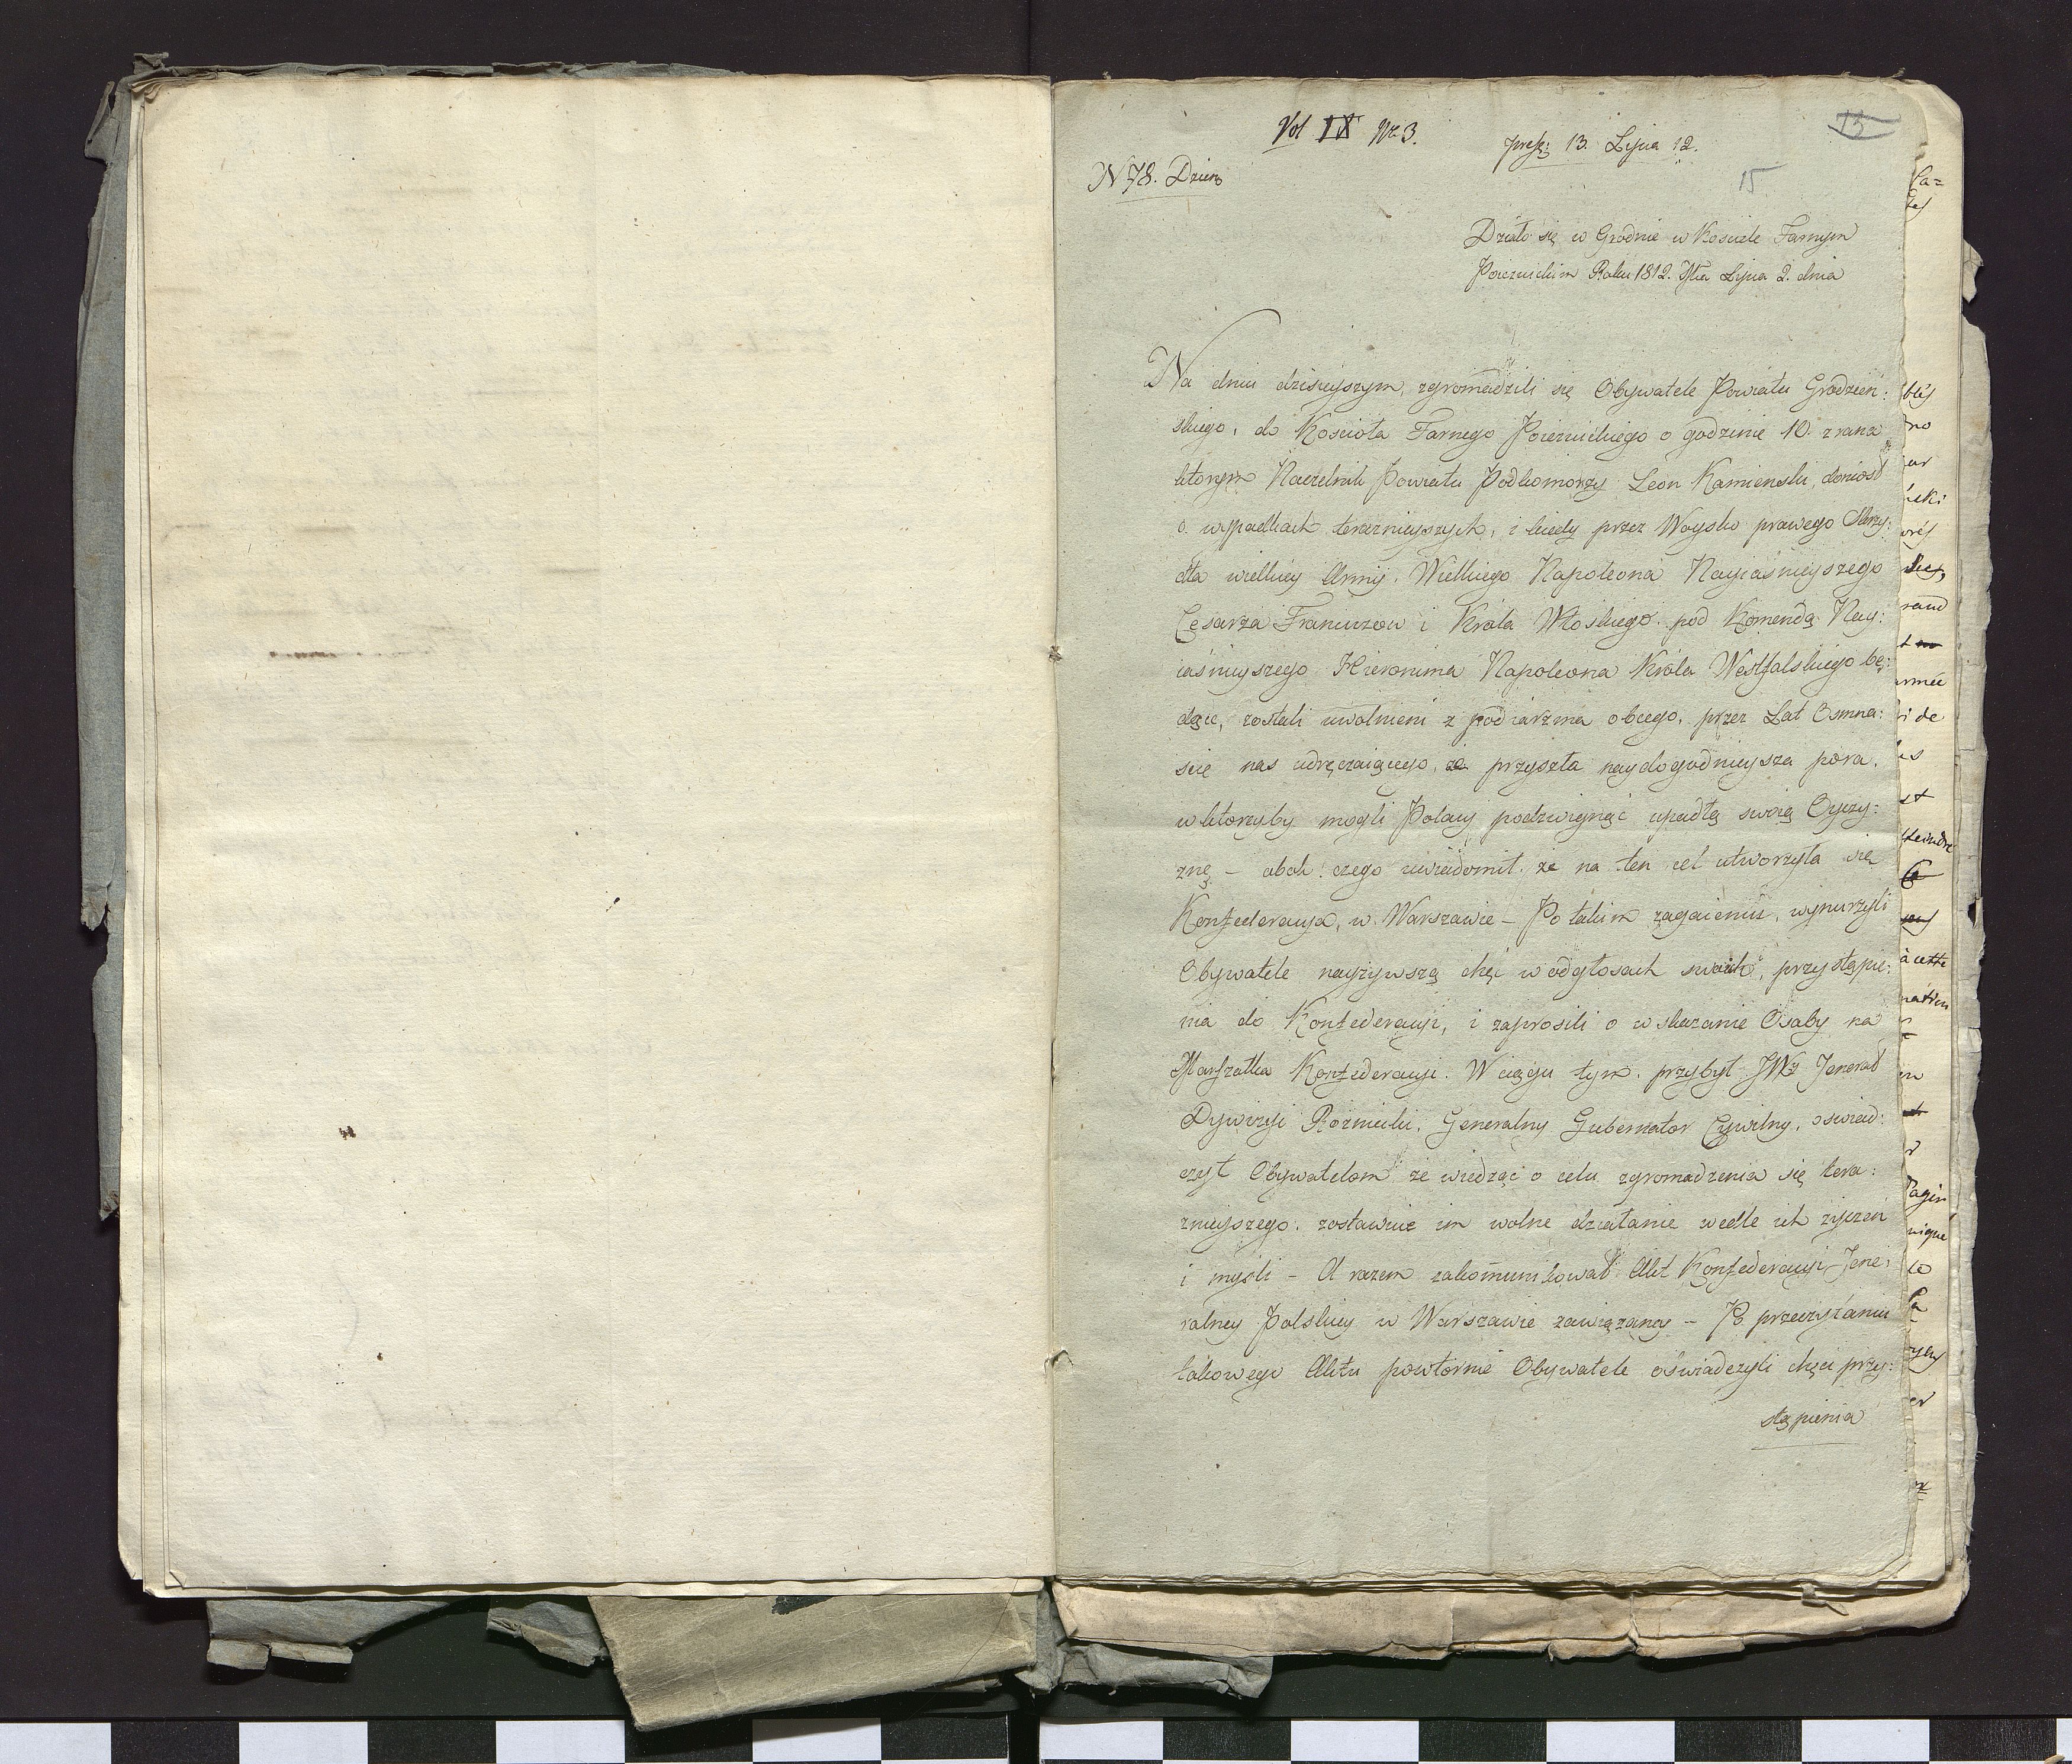 Vol IX Nr 3.
pręs: 13. Lipca 12.
15
N 78. Dzien
15
Działo się w Grodnie w Kosciele Farnym
Poiezuickim Roku 1812. Mca Lipca 2. dnia
Na dniu dzisieyszym, zgromadzili się Obywatele Powiatu Grodzień:
skiego, do Kościoła Farnego Poiezuickiego o godzinie 10. z rana
ktorym Naczelnik Powiatu Podkomorzy Leon Kamienski, doniosł
o wypadkach teraznieyszych, i kiedy przez Woysko prawego Skrzy:
dła wielkiey Armij. Wielkiego Napoleona Nayiaśnieyszego
Cesarza Francuzow i Króla Włoskiego pod Komendą Nay:
iaśnieyszego Hieronima Napoleona Króla Westfalskiego bę:
dące, zostali uwolnieni z pod iarzma obcego, przez Lat Osmna:
ście nas udręczaiącego, że przyszła naydogodnieysza pora,
w ktoreyby mogli Polacy podzwignąć upadłą swoią Oyczy:
znę – obok czego uwiadomił, że na ten cel utworzyła się
Konfederacya, w Warszawie – Po takim zagaieniu, wynurzyli
Obywatele nayżywszą chęć w odgłosach swoich, przystąpie:
nia do Konfederacyi, i zaprosili o wskazanie Osoby na
Marszałka Konfederacyi. W ciągu tym. przybył JW Jenerał
Dywizyi Rożniecki, Generalny Gubernator Cywilny, oswiad:
czył Obywatelom że wiedząc o celu zgromadzenia się tera:
znieyszego. zostawuie im wolne działanie wedle ich życzeń
i myśli – A razem zakomunikował Akt Konfederacyi Jene:
ralney Polskiey w Warszawie zawiązaney – Po przeczytaniu
takowego Aktu powtornie Obywatele oświadczyli chęci przy:
stąpienia